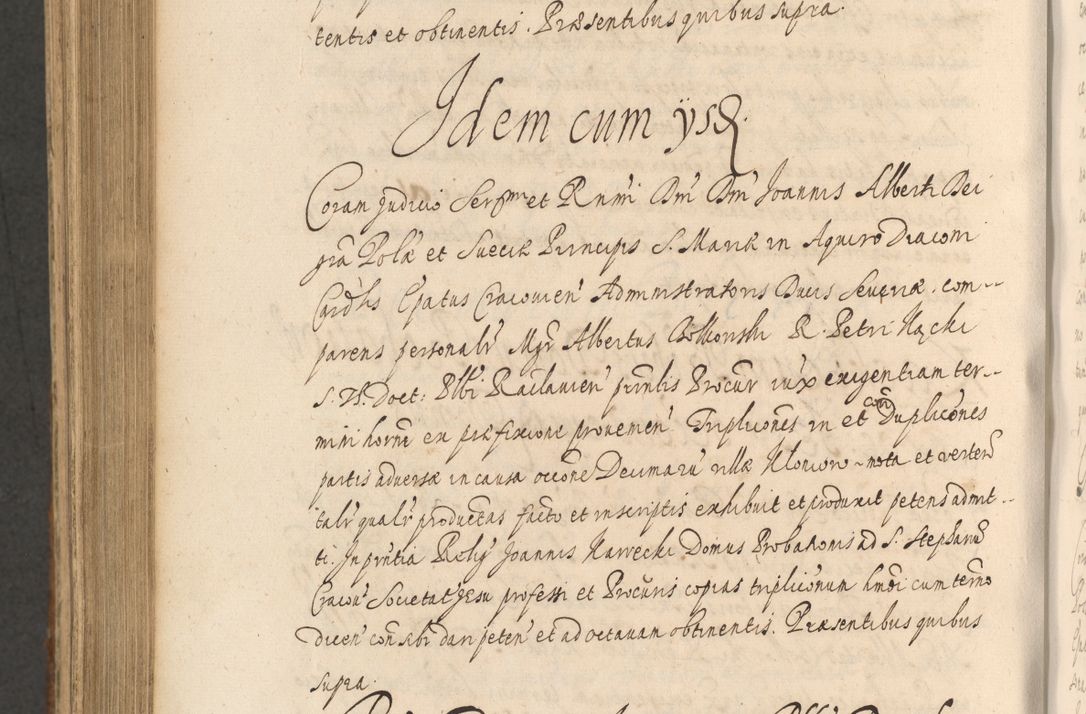 tentis et obtinentis. Præsentibus quibus supra.
Idem cum ijsdem
Coram Judicio Sermi et Rnmi Dni Dni Joannis Alberti Dei
grã Polæ et Sueciæ Principis S. Mariæ in Aquiro Diaconi
Cardlis Epatus Cracovien Administratoris Ducis Severiæ com--
parens personalr Mgr Albertus R. Petri
S. Th. Doct: Plbi Raclavien prinlis Procur iuxta exigentiam ter--
mini horne ex præfixione provenien Triplicones in et con Duplicones
partis adversæ in causa occõne Decimaru villæ mota et verten
talr qualr productas facto et in scriptis exhibuit et produxit petens admit--
ti. In prntia Religi Joannis Domus Probaonis ad S. Stephanu
Cracov Societat Jesu professi et Procuris copias triplicõnum hmõi cum termo
dicen con sibi dari peten et ad octavam obtinentis. Præsentibus quibus
supra.